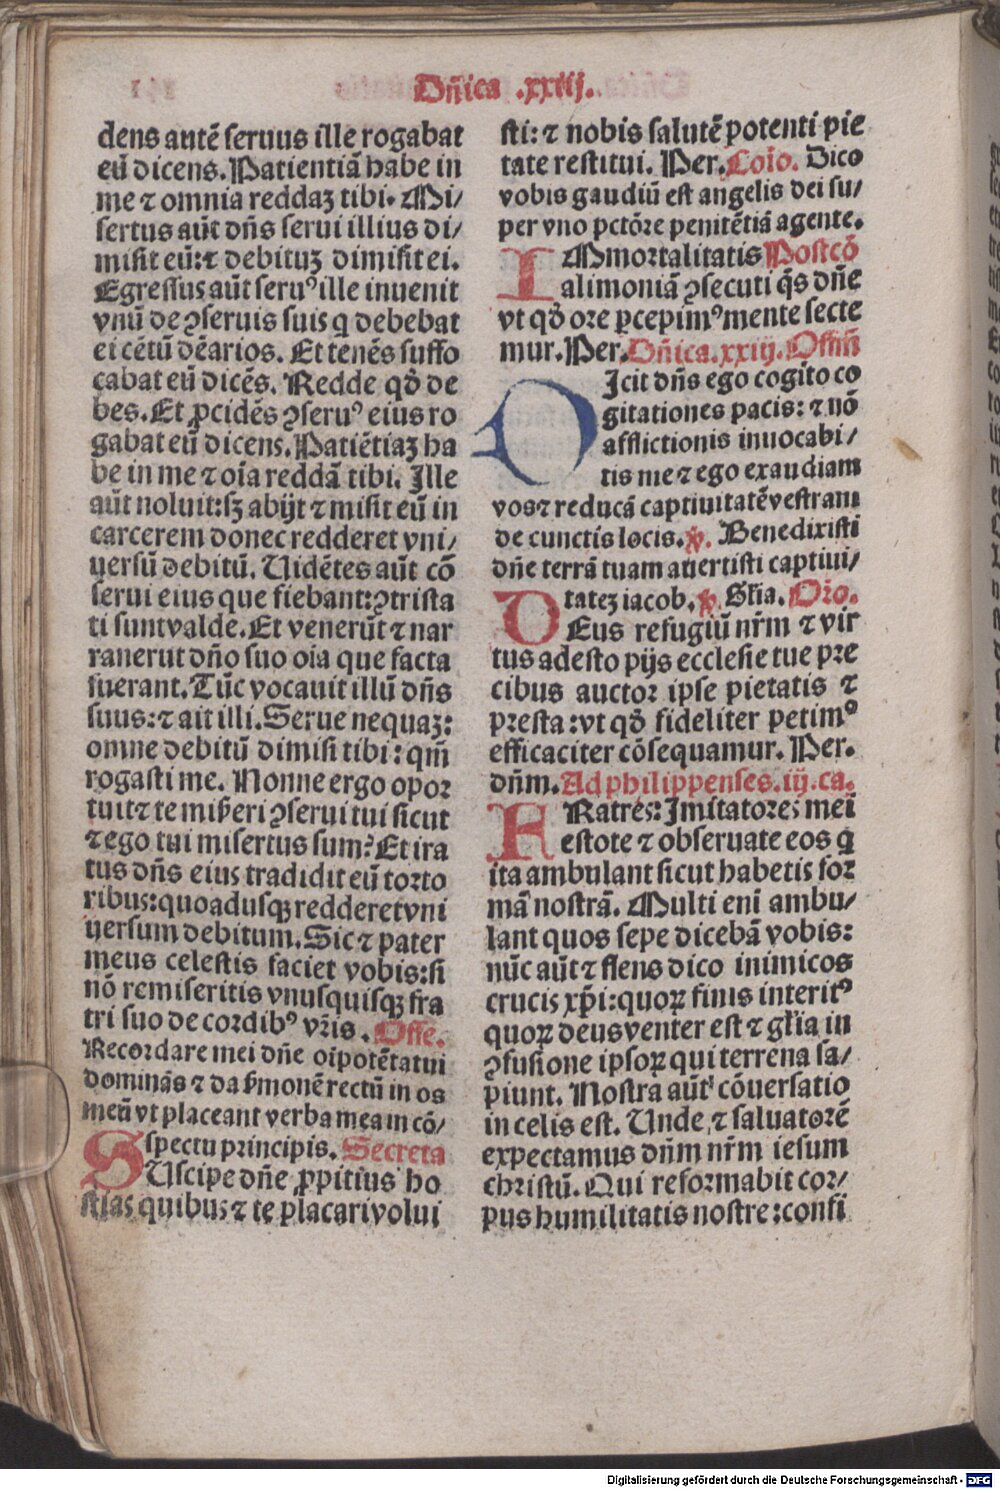 Dñica .xxiij.
dens autē seruus ille rogabat
eū dicens. Patientiā habe in
me ⁊ omnia reddaꝫ tibi. Mi/
sertus aūt dñs serui illius di/
misit eū:⁊ debituꝫ dimisit ei.
Egressus aūt seruꝰ ille inuenit
vnū de ꝯseruis suis q debebat
ei cētū dēarios. Et tenēs suffo
cabat eū dicēs. Redde qð de
bes. Et ꝓcidēs ꝯseruꝰ eius ro
gabat eū dicens. Patiētiaꝫ ha
be in me ⁊ oīa reddā tibi. Ille
aūt noluit:sꝫ abijt ⁊ misit eū in
carcerem donec redderet vni/
uersū debitū. Uidētes aūt cō
serui eius que fiebant:ꝯtrista
ti sunt valde. Et venerūt ⁊ nar
ranerut dño suo oīa que facta
fuerant. Tūc vocauit illū dñs
suus:⁊ ait illi. Serue nequaꝫ:
omne debitū dimisi tibi: qm̄
rogasti me. Nonne ergo opor
tuit ⁊ te mis̄eri ꝯserui tui sicut
⁊ ego tui misertus sum? Et ira
tus dñs eius tradidit eū torto
ribus:quoadusqꝫ redderet vni
uersum debitum. Sic ⁊ pater
meus celestis faciet vobis:si
nō remiseritis vnusquisqꝫ fra
tri suo de cordibꝰ vr̄is . Offe.
Recordare mei dñe oīpotētatui
domināns ⁊ da s̄monē rectū in os
meū vt placeant verba mea in cō/
spectu principis. Secreta
SUscipe dñe ꝓpitius ho
stias quibus ⁊ te placari volui
sti: ⁊ nobis salutē potenti pie
tate restitui. Per. Coīo. Dico
vobis gaudiū est angelis dei su/
per vno pctōre penitētiā agente.
IMmortalitatis Postcō
alimoniā ꝯsecuti q̄s dñe
vt qð ore ꝑcepimꝰ mente secte
mur. Per. Dñica.xxiij. Offm̄
DIcit dñs ego cogito co
gitationes pacis: ⁊ nō
afflictionis inuocabi/
tis me ⁊ ego exaudiam
vos ⁊ reducā captiuitatē vestram
de cunctis locis. ꝟ. Benedixisti
dñe terrā tuam auertisti captiui/
tateꝫ iacob. ꝟ. Gl̄ia. Oro.
DEus refugiū nr̄m ⁊ vir
tus adesto pijs ecclesie tue pre
cibus auctor ipse pietatis ⁊
presta:vt qð fideliter petimꝰ
efficaciter cōsequamur. Per.
dn̄m. Ad philippenses.iij.ca.
FRatres: Imitatores mei
estote ⁊ obseruate eos q
ita ambulant sicut habetis for
mā nostrā. Multi eni ambu/
lant quos sepe dicebā vobis:
nūc aūt ⁊ flens dico inimicos
crucis xp̄i:quoꝝ finis interitꝰ
quoꝝ deus venter est ⁊ gl̄ia in
ꝯfusione ipsoꝝ qui terrena sa/
piunt. Nostra aūt cōuersatio
in celis est. Unde ⁊ saluatorē
expectamus dn̄m nr̄m iesum
christū. Qui reformabit cor/
pus humilitatis nostre:confi
Digitalisierung gefördert durch die Deutsche Forschungsgemeinschaft - DFG